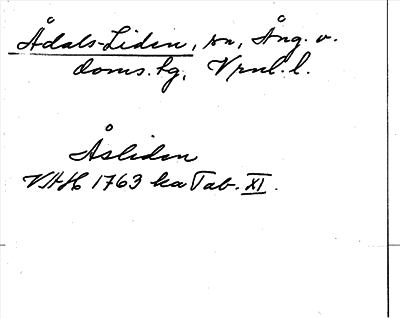 Ådals-Liden, sn, Ång. v.
doms.sg, Vrnl. l.
Åsliden
VAH 1763 ka Tab. XI.